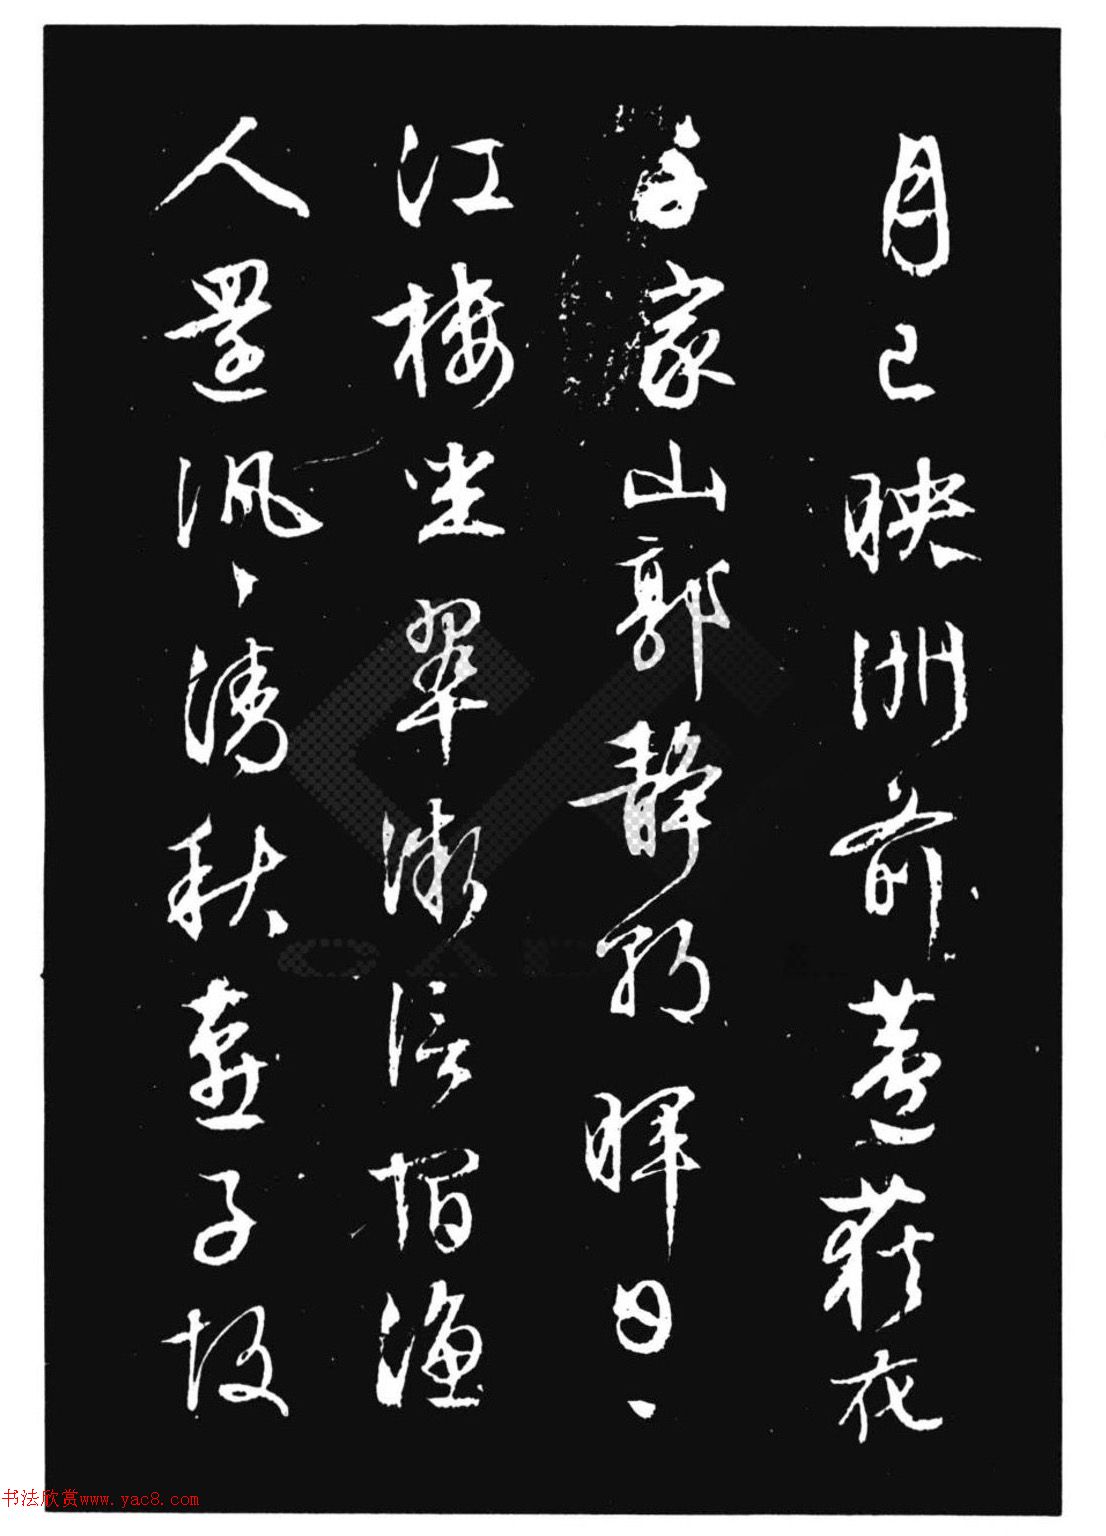 月已映洲前蘆荻花
家山郭靜朝暉日、
江樓坐翠微信宿漁
人還汎、清秋燕子故
书法欣赏www.yac8.com